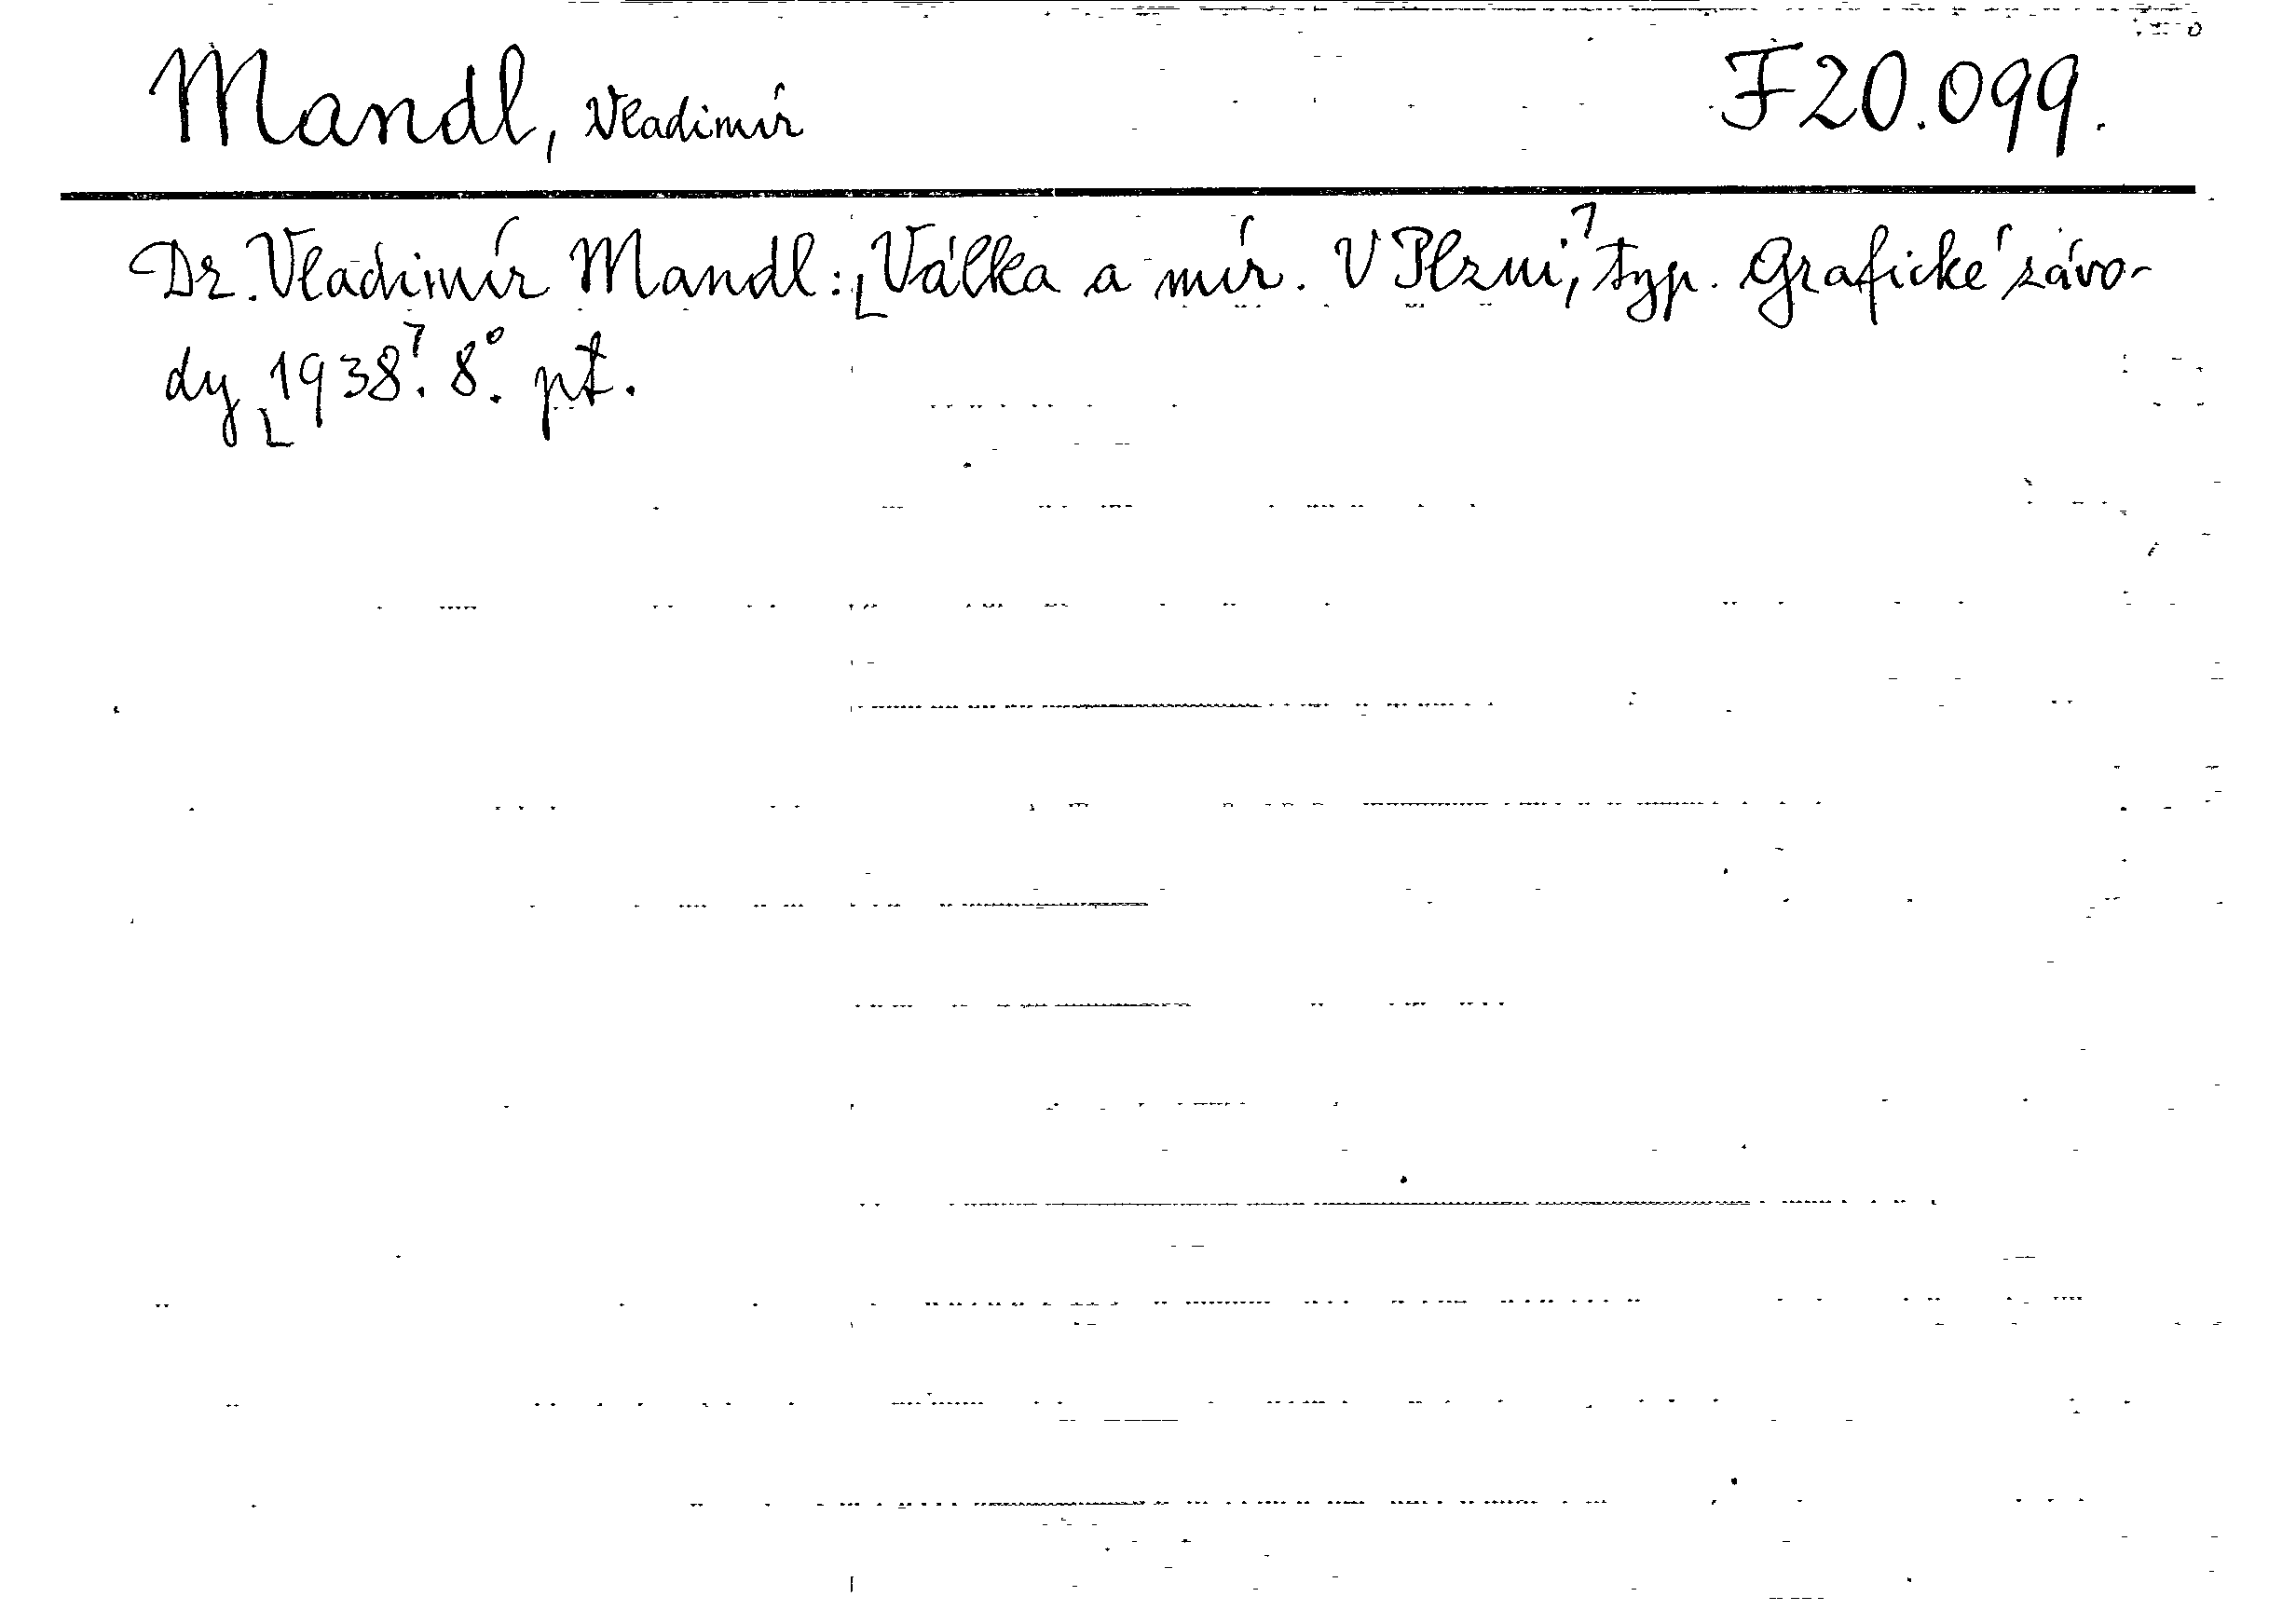 Mandl, Vladimír F 20.099.
Dr. Vladimír Mandl: Válka a mír. V Plzni, typ. Grafické závo-
dy 1938. 8°. pt.